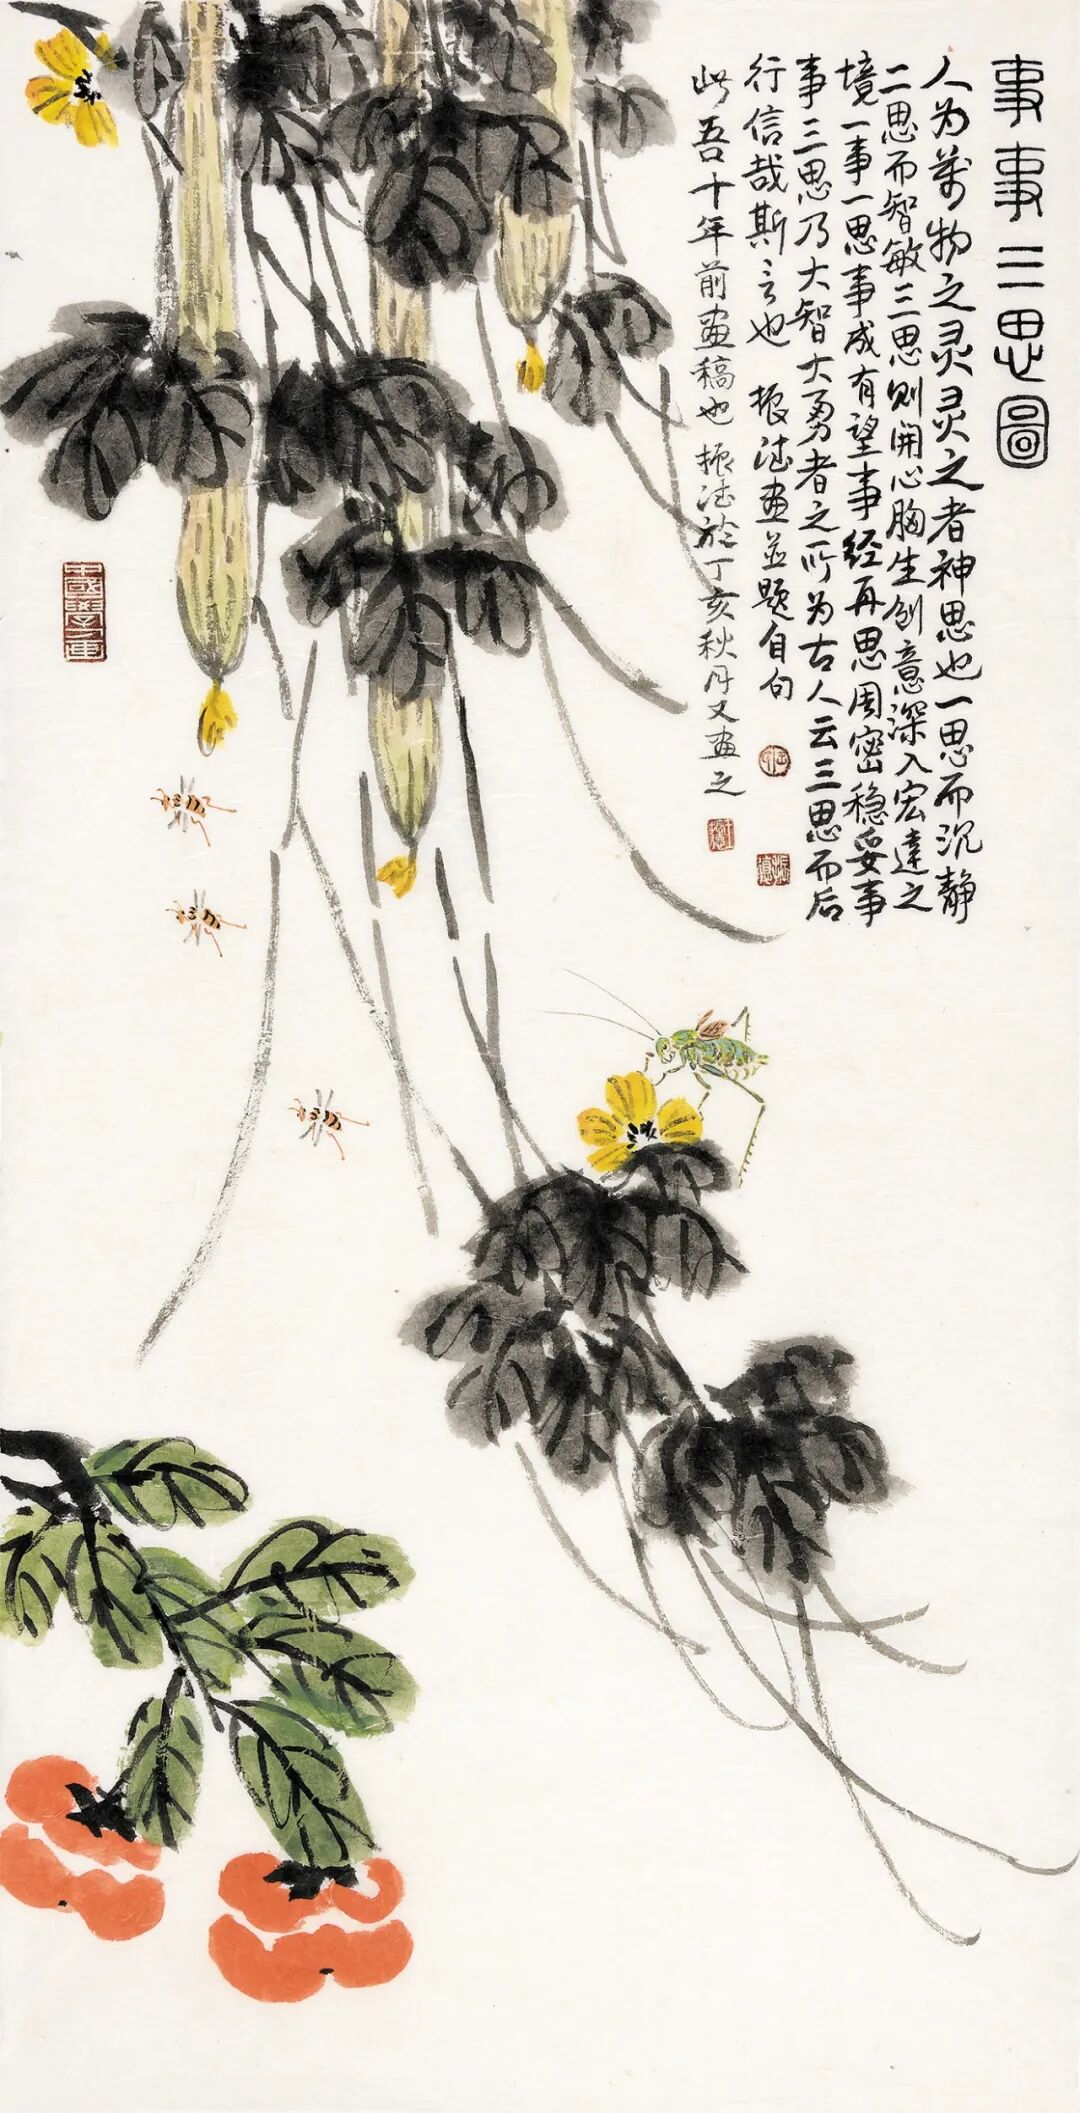 事事三思圖
人为萬物之灵灵之者神思也一思而沉静
二思而智敏三思则開心胸生创意深入宏達之
境一事一思事成有望事经再思周密稳妥事
事三思乃大智大勇者之所为古人云三思而后
行信哉斯言也 振滹画並题自句
此吾十年前画稿也 振滹於丁亥秋月又画之